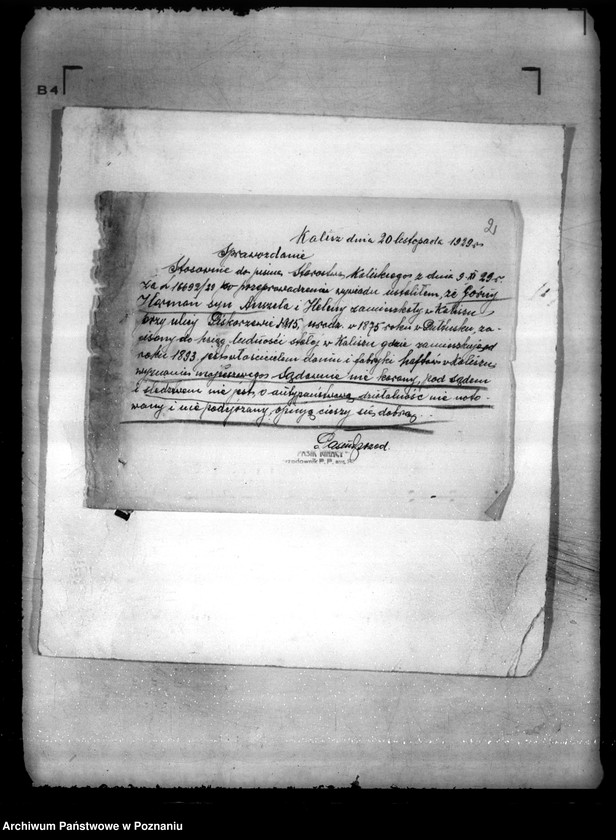 B4
2.
Kalisz dnia 20 listopada 1929 r.
Sprawozdanie
Stosownie do pisma Starostwa Kaliskiego z dnia 9.XI 29 r.
za № 16692/29 po przeprowadzeniu wywiadu ustaliłem, że Górny
Herman syn i Heleny zamieszkały w Kaliszu
przy ulicy Piskorzewie №15, urodz. w 1875 roku w za-
pisany do ksiąg ludności stałej w Kaliszu gdzie zamieszkuje od
roku 1893 jest właścicielem domu i fabryki haftów w Kaliszu
wyznania mojżeszowego Sądownie nie karany, pod sądem
i śledztwem nie jest, o antypaństwową działalność nie noto-
wany i nie podejrzany, opinją cieszy się dobrą.
przod.
Archiwum Państwowe w Poznaniu